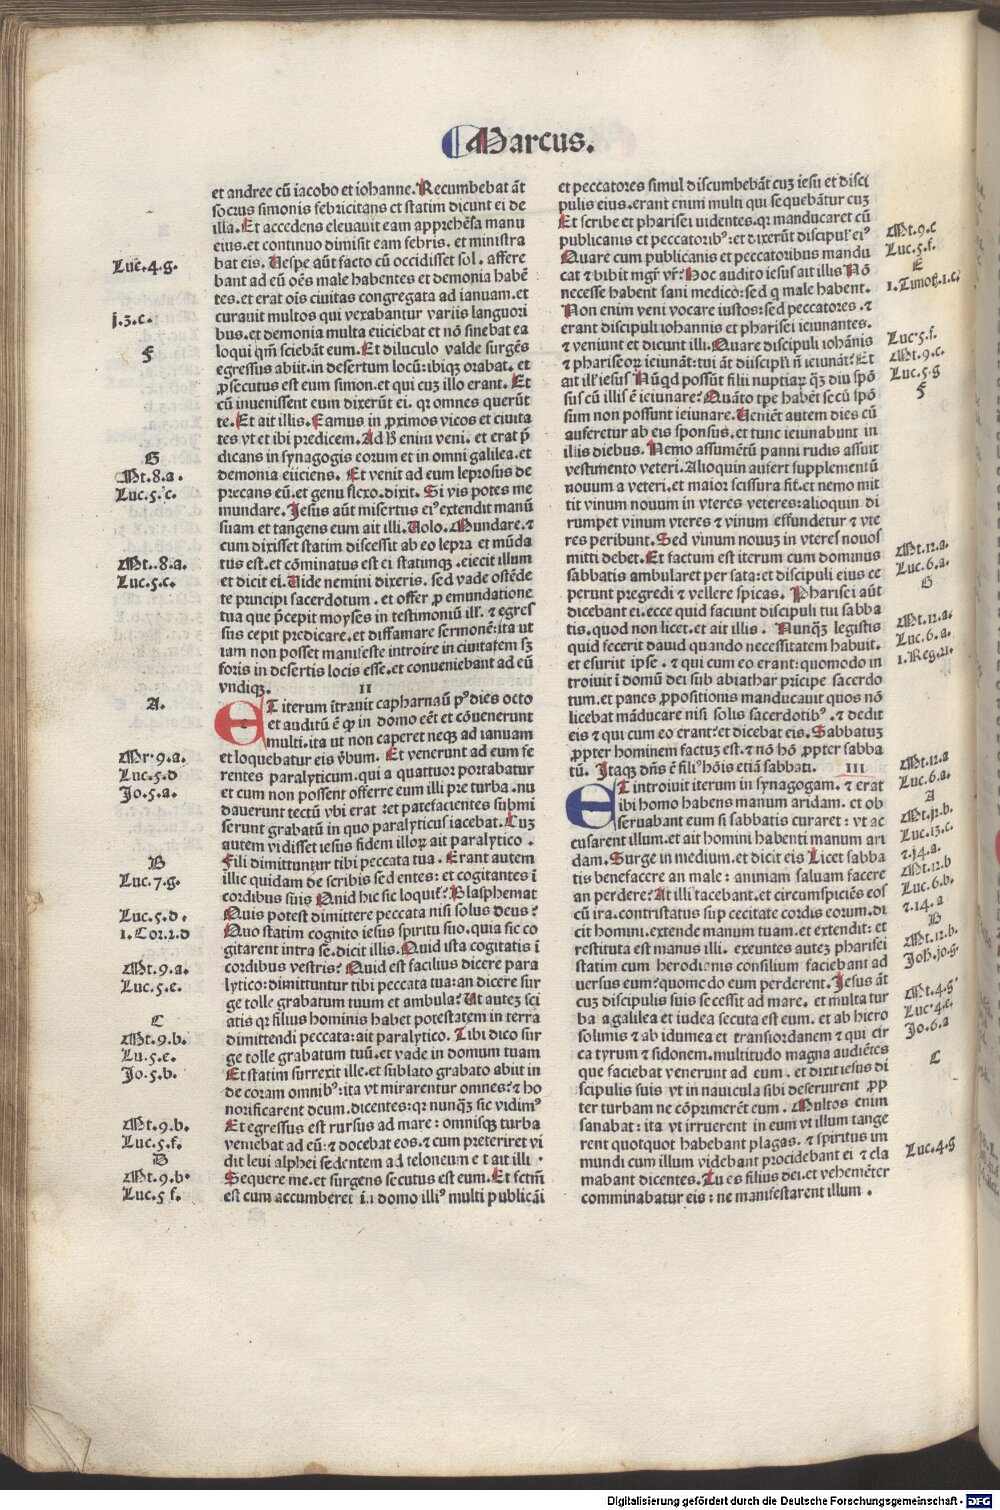 Marcus.
et andree cū iacobo et iohanne. Recumbebat āt
socrus simonis febricitans et statim dicunt ei de
illa. Et accedens eleuauit eam apprehēsa manu
eius. et continuo dimisit eam febris. et ministra
bat eis. Uespe aūt facto cū occidisset sol. affere
bant ad eū oēs male habentes et demonia habē
tes. et erat oīs ciuitas congregata ad ianuam. et
curauit multos qui vexabantur variis languori
bus. et demonia multa eiiciebat et nō sinebat ea
loqui qm̄ sciebāt eum. Et diluculo valde surgēs
egressus abiit. in desertum locū: ibiqꝫ orabat. et
ꝓsecutus est eum simon. et qui cuꝫ illo erant. Et
cū inuenissent eum dixerūt ei. qr omnes querūt
te. Et ait illis. Eamus in ꝓximos vicos et ciuita
tes vt et ibi predicem. Ad H̄ enim veni. et erat p̄
dicans in synagogis eorum et in omni galilea. et
demonia eiiciens. Et venit ad eum leprosus de
precans eū. et genu flexo. dixit. Si vis potes me
mundare. Jesus aūt misertus ei⁹ extendit manū
suam et tangens eum ait illi. Uolo. Mundare. ⁊
cum dixisset statim discessit ab eo lepra et mūda
tus est. et cōminatus est ei statimqꝫ. eiecit illum
et dicit ei. Uide nemini dixeris. sed vade ostēde
te principi sacerdotum. et offer ꝓ emundatione
tua que p̄cepit moyses in testimoniū ill̄. ⁊ egres
sus cepit predicare. et diffamare sermonē: ita ut
iam non posset manifeste introire in ciuitatem sꝫ
foris in desertis locis esse. et conueniebant ad eū
vndiqꝫ. II
ET iterum ītrauit capharnaū p⁹ dies octo
et auditū ē ꝙ in domo eēt et cōuenerunt
multi. ita ut non caperet neqꝫ ad ianuam
et loquebatur eis v̄bum. Et venerunt ad eum fe
rentes paralyticum. qui a quattuor portabatur
et cum non possent offerre eum illi pre turba. nu
dauerunt tectū vbi erat: et patefacientes submi
serunt grabatū in quo paralyticus iacebat. Cuꝫ
autem vidisset iesus fidem illoꝝ ait paralytico.
Fili dimittuntur tibi peccata tua. Erant autem
illic quidam de scribis sedentes: et cogitantes ī
cordibus suis Quid hic sic loquit̄? Blasphemat
Quis potest dimittere peccata nisi solus deus?
Quo statim cognito iesus spiritu suo. quia sic co
gitarent intra se. dicit illis. Quid ista cogitatis ī
cordibus vestris? Quid est facilius dicere para
lytico: dimittuntur tibi peccata tua: an dicere sur
ge tolle grabatum tuum et ambula? Ut autez sci
atis qr filius hominis habet potestatem in terra
dimittendi peccata: ait paralytico. Tibi dico sur
ge tolle grabatum tuū. et vade in domum tuam
Et statim surrexit ille. et sublato grabato abiit in
de coram omnib⁹: ita vt mirarentur omnes: ⁊ ho
norificarent deum. dicentes: qr nunqꝫ sic vidim⁹
Et egressus est rursus ad mare: omnisqꝫ turba
veniebat ad eū: ⁊ docebat eos. ⁊ cum preteriret vi
dit leui alphei sedentem ad teloneum et ait illi.
Sequere me. et surgens secutus est eum. Et fctm̄
est cum accumberet in domo illi⁹ multi publicāi
Luc.4.g.
j.3.c.
F
G
Mt.8.a.
Luc.5.c.
Mt..8.a.
Luc.5.c.
A.
Mr.9.a.
Luc.5.d
Jo.5.a.
B
Luc.7.g.
Luc.5.d.
1.Cor.2.d
Mt.9.a.
Luc.5.e.
C
Mt.9.b.
Lu.5.e.
Jo.5.b.
Mt.9.b.
Luc.5.f.
D
Mt.9.b.
Luc.5 f.
et peccatores simul discumbebāt cuꝫ iesu et disci
pulis eius. erant enim multi qui sequebātur cuꝫ
Et scribe et pharisei uidentes. qr manducaret cū
publicanis et peccatorib⁹: et dixerūt discipul̄ ei⁹
Quare cum publicanis et peccatoribus mandu
cat ⁊ bibit mgr̄ vr̄? Hoc audito iesus ait illis Nō
necesse habent sani medico: sed q male habent.
Non enim veni vocare iustos: sed peccatores. ⁊
erant discipuli iohannis et pharisei ieiunantes.
⁊ veniunt et dicunt illi. Quare discipuli iohānis
⁊ phariseoꝝ ieiunāt: tui āt discipl̄i n̄ ieiunāt? Et
ait ill̄ iesus Nūqd possūt filii nuptiaꝝ qꝫ diu spō
sus cū illis ē ieiunare? Quāto tpe habēt secū spō
sum non possunt ieiunare. Ueniēt autem dies cū
auferetur ab eis sponsus. et tunc ieiunabunt in
illis diebus. Nemo assumētū panni rudis assuit
vestimento veteri. Alioquin aufert supplementū
nouum a veteri. et maior scissura fit. et nemo mit
tit vinum nouum in vteres veteres: alioquin di
rumpet vinum vteres ⁊ vinum effundetur ⁊ vte
res peribunt. Sed vinum nouuꝫ in vteres nouos
mitti debet. Et factum est iterum cum dominus
sabbatis ambularet per sata: et discipuli eius ce
perunt pregredi ⁊ vellere spicas. Pharisei aūt
dicebant ei. ecce quid faciunt discipuli tui sabba
tis. quod non licet. et ait illis. Nunqꝫ legistis
quid fecerit dauid quando necessitatem habuit.
et esuriit ipse. ⁊ qui cum eo erant: quomodo in
troiuit ī domū dei sub abiathar pricipe sacerdo
tum. et panes ꝓpositionis manducauit quos nō
licebat māducare nisi solis sacerdotib⁹. ⁊ dedit
eis ⁊ qui cum eo erant? et dicebat eis. Sabbatuꝫ
ꝓpter hominem factuꝫ est. ⁊ nō hō ꝓpter sabba
tū. Itaqꝫ dn̄s ē fili⁹ hōis etiā sabbati. III
ET introiuit iterum in synagogam. ⁊ erat
ibi homo habens manum aridam. et ob
seruabant eum si sabbatis curaret: vt ac
cusarent illum. et ait homini habenti manum ari
dam. Surge in medium. et dicit eis Licet sabba
tis benefacere an male: animam saluam facere
an perdere? At illi tacebant. et circumspiciēs eos
cū ira. contristatus sup cecitate cordis eorum. di
cit homini. extende manum tuam. et extendit: et
restituta est manus illi. exeuntes autez pharisei
statim cum herodianis consilium faciebant ad
uersus eum? quomodo eum perderent. Jesus āt
cuꝫ discipulis suis secessit ad mare. et multa tur
ba a galilea et iudea secuta est eum. et ab hiero
solimis ⁊ ab idumea et transiordanem ⁊ qui cir
ca tyrum ⁊ sidonem. multitudo magna audiētes
que faciebat venerunt ad eum. et dixit iesus di
scipulis suis vt in nauicula sibi deseruirent ꝓp
ter turbam ne cōprimerēt eum. Multos enim
sanabat: ita vt irruerent in eum vt illum tange
rent quotquot habebant plagas. ⁊ spiritus im
mundi cum illum videbant procidebant ei ⁊ cla
mabant dicentes. Tu es filius dei. et vehemēter
comminabatur eis: ne manifestarent illum.
Mt.9.c
Luc.5.f.
E
1.Timoth.1.c.
Luc.5.f.
Mt.9.c.
Luc.5.g
F
Mt.12.a.
Luc.6.a.
G
Mt.12.a.
Luc.6.a.
1.Reg.21.
Mt.12.a
Luc.6.a.
A
Mt.12.b.
Luc.13.c.
⁊.14.a.
Mt.12.b
Luc.6.b.
⁊.14.a
B
Mt.12.b.
Joh.10.g.
Mt.4.g
Luc.4.c.
Jo.6.a
C
Luc.4.g
Digitalisierung gefördert durch die Deutsche Forschungsgemeinschaft - DFG